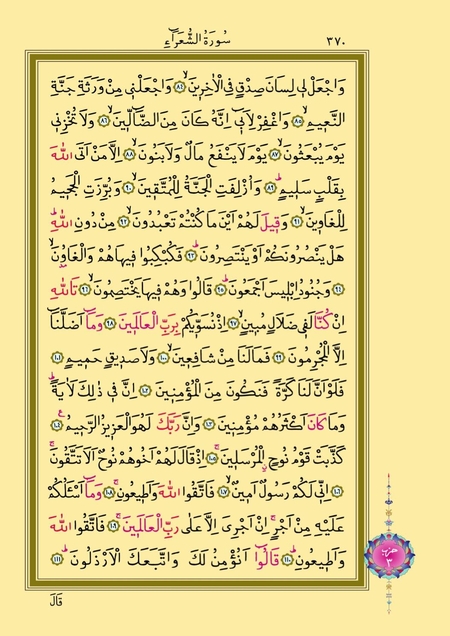 سُورَةُ الشُّعَرَاءِ ٣٧٠
وَاجْعَلْ ل۪ي لِسَانَ صِدْقٍ فِي الْاٰخِر۪ينَۙ ﴿٨٤﴾ وَاجْعَلْن۪ي مِنْ وَرَثَةِ جَنَّةِ
النَّع۪يمِۙ ﴿٨٥﴾ وَاغْفِرْ لِاَب۪ٓي اِنَّهُ كَانَ مِنَ الضَّٓالّ۪ينَۙ ﴿٨٦﴾ وَلَا تُخْزِن۪ي
يَوْمَ يُبْعَثُونَۙ ﴿٨٧﴾ يَوْمَ لَا يَنْفَعُ مَالٌ وَلَا بَنُونَۙ ﴿٨٨﴾ اِلَّا مَنْ اَتَى اللّٰهَ
بِقَلْبٍ سَل۪يمٍۜ ﴿٨٩﴾ وَاُزْلِفَتِ الْجَنَّةُ لِلْمُتَّق۪ينَۙ ﴿٩٠﴾ وَبُرِّزَتِ الْجَح۪يمُ
لِلْغَاو۪ينَۙ ﴿٩١﴾ وَق۪يلَ لَهُمْ اَيْنَ مَا كُنْتُمْ تَعْبُدُونَۙ ﴿٩٢﴾ مِنْ دُونِ اللّٰهِۜ
هَلْ يَنْصُرُونَكُمْ اَوْ يَنْتَصِرُونَۜ ﴿٩٣﴾ فَكُبْكِبُوا ف۪يهَا هُمْ وَالْغَاوُ۫نَۙ
﴿٩٤﴾ وَجُنُودُ اِبْل۪يسَ اَجْمَعُونَۜ ﴿٩٥﴾ قَالُوا وَهُمْ ف۪يهَا يَخْتَصِمُونَۙ ﴿٩٦﴾ تَاللّٰهِ
اِنْ كُنَّا لَف۪ي ضَلَالٍ مُب۪ينٍۙ ﴿٩٧﴾ اِذْ نُسَوّ۪يكُمْ بِرَبِّ الْعَالَم۪ينَ ﴿٩٨﴾ وَمَٓا اَضَلَّنَٓا
اِلَّا الْمُجْرِمُونَ ﴿٩٩﴾ فَمَا لَنَا مِنْ شَافِع۪ينَۙ ﴿١٠٠﴾ وَلَا صَد۪يقٍ حَم۪يمٍ ﴿١٠١﴾
فَلَوْ اَنَّ لَنَا كَرَّةً فَنَكُونَ مِنَ الْمُؤْمِن۪ينَ ﴿١٠٢﴾ اِنَّ ف۪ي ذٰلِكَ لَاٰيَةًۜ
وَمَا كَانَ اَكْثَرُهُمْ مُؤْمِن۪ينَ ﴿١٠٣﴾ وَاِنَّ رَبَّكَ لَهُوَ الْعَز۪يزُ الرَّح۪يمُ۟ ﴿١٠٤﴾
كَذَّبَتْ قَوْمُ نُوحٍۨ الْمُرْسَل۪ينَۚ ﴿١٠٥﴾ اِذْ قَالَ لَهُمْ اَخُوهُمْ نُوحٌ اَلَا تَتَّقُونَۚ
﴿١٠٦﴾ اِنّ۪ي لَكُمْ رَسُولٌ اَم۪ينٌۙ ﴿١٠٧﴾ فَاتَّقُوا اللّٰهَ وَاَط۪يعُونِۚ ﴿١٠٨﴾ وَمَٓا اَسْـَٔلُكُمْ
عَلَيْهِ مِنْ اَجْرٍۚ اِنْ اَجْرِيَ اِلَّا عَلٰى رَبِّ الْعَالَم۪ينَۚ ﴿١٠٩﴾ فَاتَّقُوا اللّٰهَ
وَاَط۪يعُونِۜ ﴿١١٠﴾ قَالُٓوا اَنُؤْمِنُ لَكَ وَاتَّبَعَكَ الْاَرْذَلُونَۜ ﴿١١١﴾
حزب
٣
قَالَ